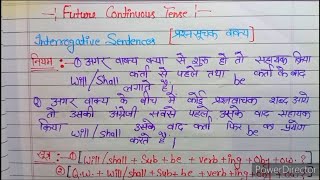 Future Continuous Tense
Interrogative Sentences [प्रश्नसूचक वाक्य]
नियम:- ① अगर वाक्य क्या से शुरू हो तो सहायक क्रिया
will/shall कर्ता से पहले तथा be कर्ता के बाद
लगाते हैं।
② अगर वाक्य के बीच में कोई प्रश्नवाचक शब्द आये
तो उसकी अंग्रेजी सबसे पहले, उसके बाद सहायक
क्रिया will/shall उसके बाद कर्ता फिर be का प्रयोग
करते हैं।
सूत्र :- ① [Will/shall + Sub + be + verb+ing + Obj + o.w. ?
② [Q.w. + Will/shall + Sub + be + verb+ing + Obj + o.w. ?
PowerDirector